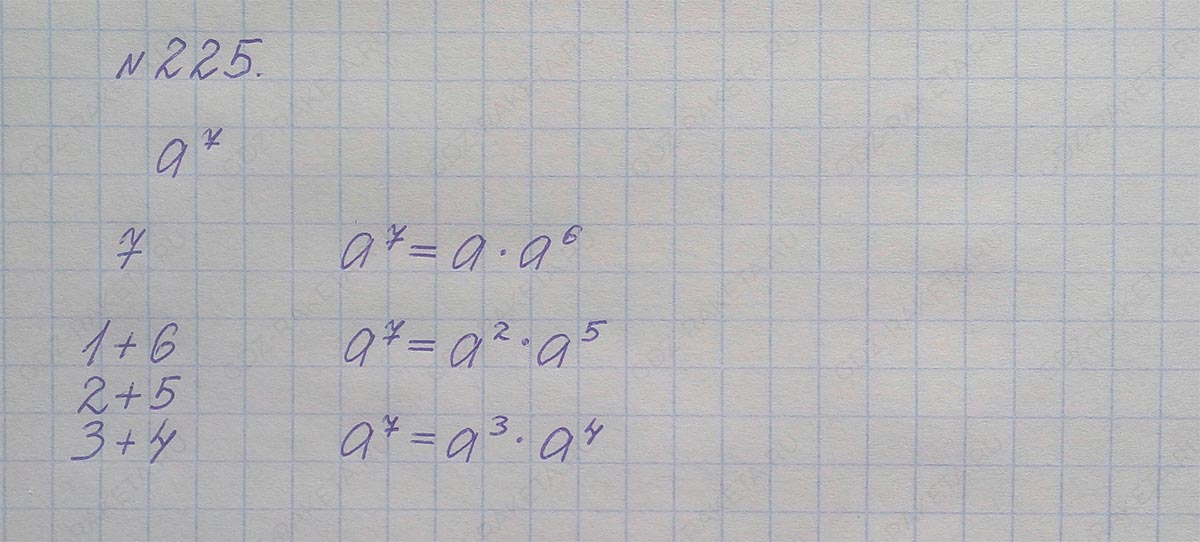 №225.
a⁷
7 a⁷ = a · a⁶
1+6 a⁷ = a² · a⁵
2+5
3+4 a⁷ = a³ · a⁴
GDZ-RAKETA.RU